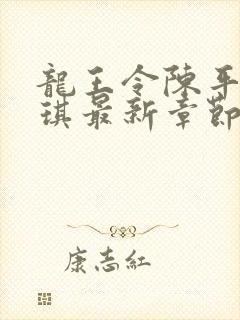 龍王令陳平
琪最新章節
康志紅